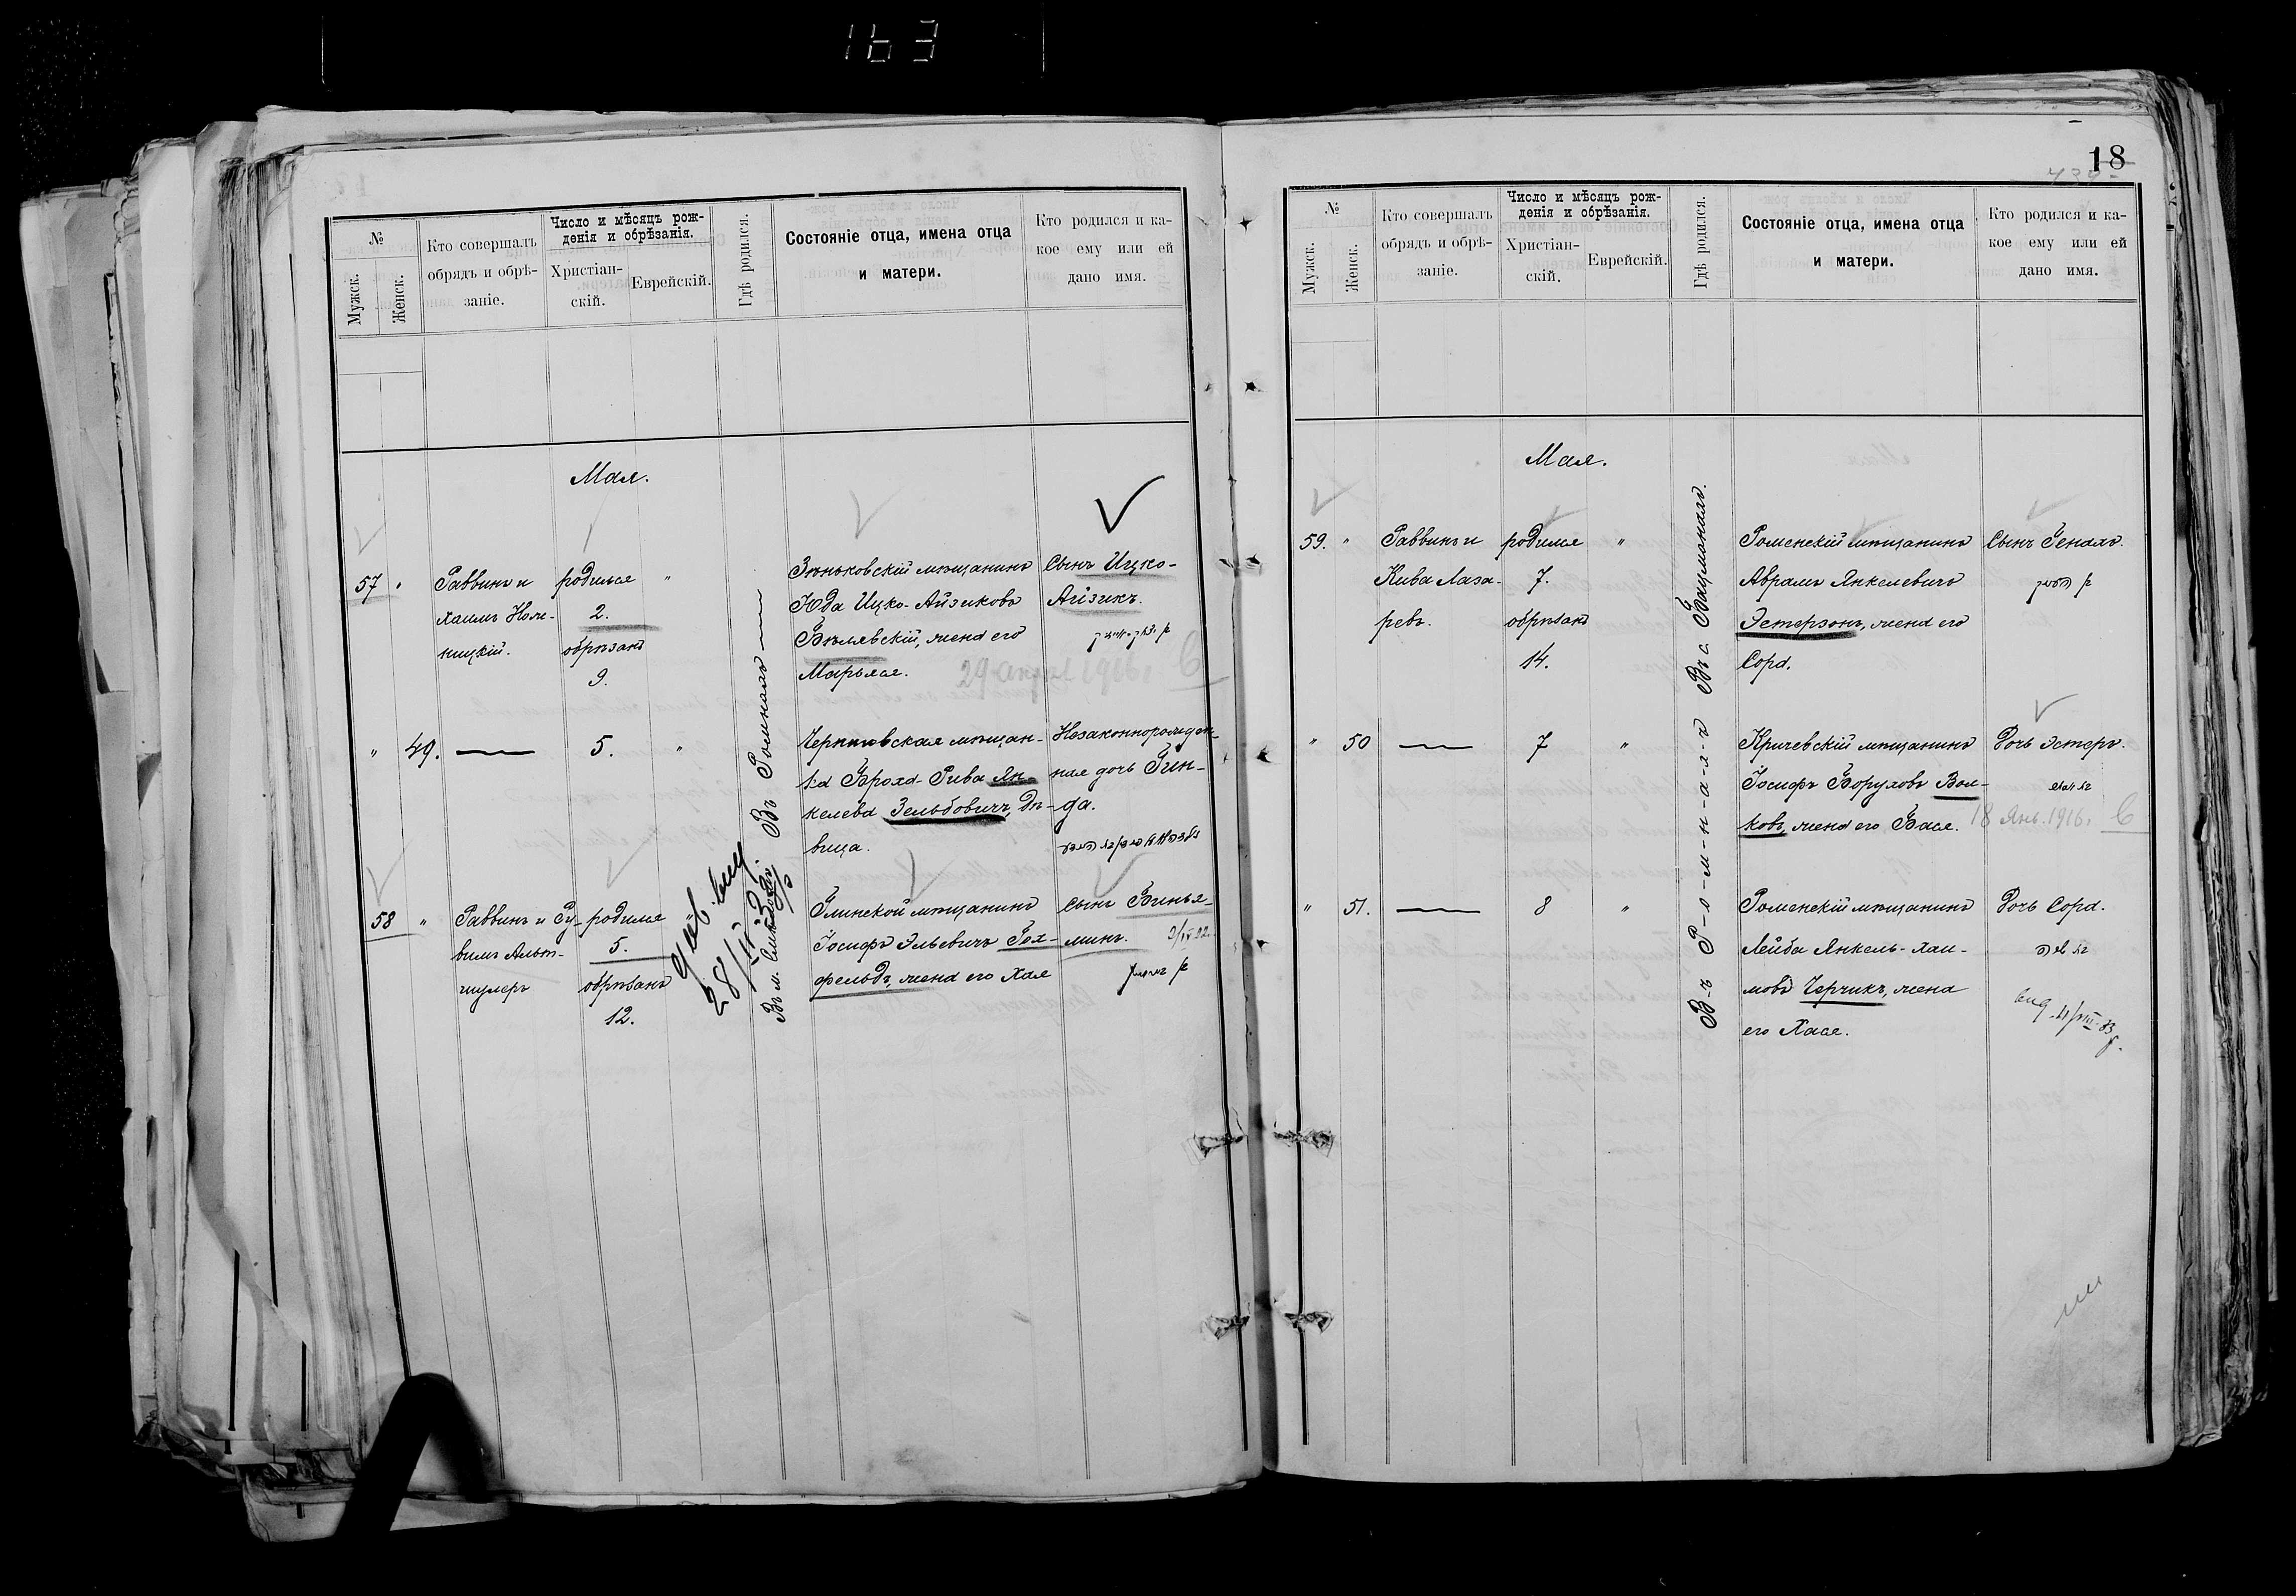 163
№
Мужск.
Женск.
Кто совершалъ
обрядъ и обрѣ-
заніе.
Число и мѣсяцъ рож-
денія и обрѣзанія.
Христіан-
скій.
Еврейскій.
Гдѣ родился.
Состояніе отца, имена отца
и матери.
Кто родился и ка-
кое ему или ей
дано имя.
Мая.
57 "
Раввинъ и
Хаимъ
ницкій.
родился "
2.
обрѣзанъ
9.
Въ Роминахъ
Зѣньковскій мѣщанинъ
Юда Ицко-Айзиковъ
Бѣлявскій, жена его
Марьяся.
Сынъ Ицко-
Айзикъ.
29 апрел 1916 г.
" 49.
5. "
Черниговская мѣщан-
ка Броха-Рива Ян-
келева Зельбовичъ, дѣ-
вица.
Незаконнорожден-
ная дочь Гин-
да.
58 "
Раввинъ и Ру-
вимъ Альт-
шулеръ
родился "
5.
обрѣзанъ
12.
28/II
Въ м.
Глинской мѣщанинъ
Іосифъ Эльевичъ Рох-
фельдъ, жена его Хая
Сынъ Бинья-
минъ.
18
№
Мужск.
Женск.
Кто совершалъ
обрядъ и обрѣ-
заніе.
Число и мѣсяцъ рож-
денія и обрѣзанія.
Христіан-
скій.
Еврейскій.
Гдѣ родился.
Состояніе отца, имена отца
и матери.
Кто родился и ка-
кое ему или ей
дано имя.
Мая.
59. "
Раввинъ и
Кива Лаза-
ревъ.
родился "
7.
обрѣзанъ
14.
Въ с. Бацманахъ.
Роменскій мѣщанинъ
Абрамъ Янкелевичъ
Эстерзонъ, жена его
Сора.
Сынъ Гендль.
" 50
7 "
В-ъ Р-о-м-н-а-х-ъ
Кричевскій мѣщанинъ
Іосифъ Боруховъ Вол-
ковъ, жена его Бася.
Дочь Эстеръ.
18 Янв. 1916 г.
" 51.
8 "
Роменскій мѣщанинъ
Лейба Янкель-Хаи-
мовъ Черчикъ, жена
его Хася.
Дочь Сора.